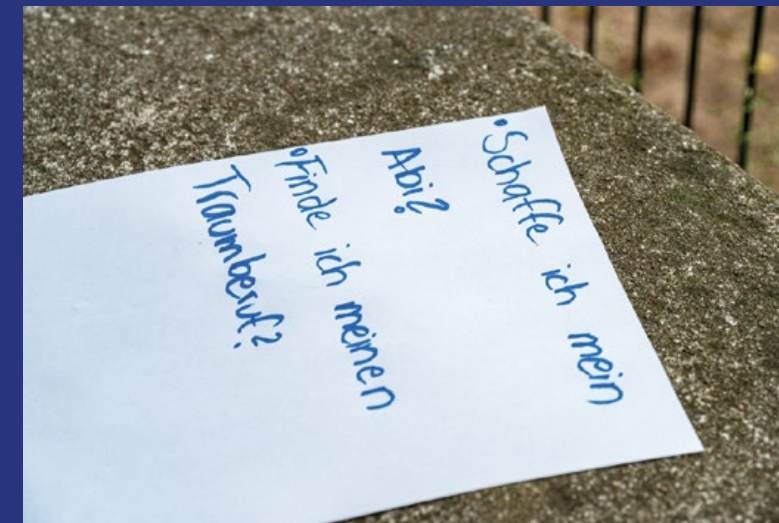 • Schaffe ich mein
Abi?
• Finde ich meinen
Traumberuf?